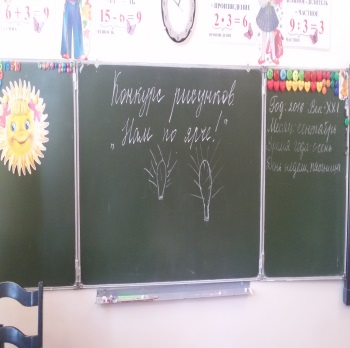 6 + 3 = 9
15 - 6 = 9
ПРОИЗВЕДЕНИЕ
2 · 3 = 6
ДЕЛИТЕЛЬ
ЧАСТНОЕ
9 : 3 = 3
Конкурс рисунков
"Нам по ярче!"
Год: 2010 Век-XXI
Месяц сентябрь
Время года осень
День недели пятница